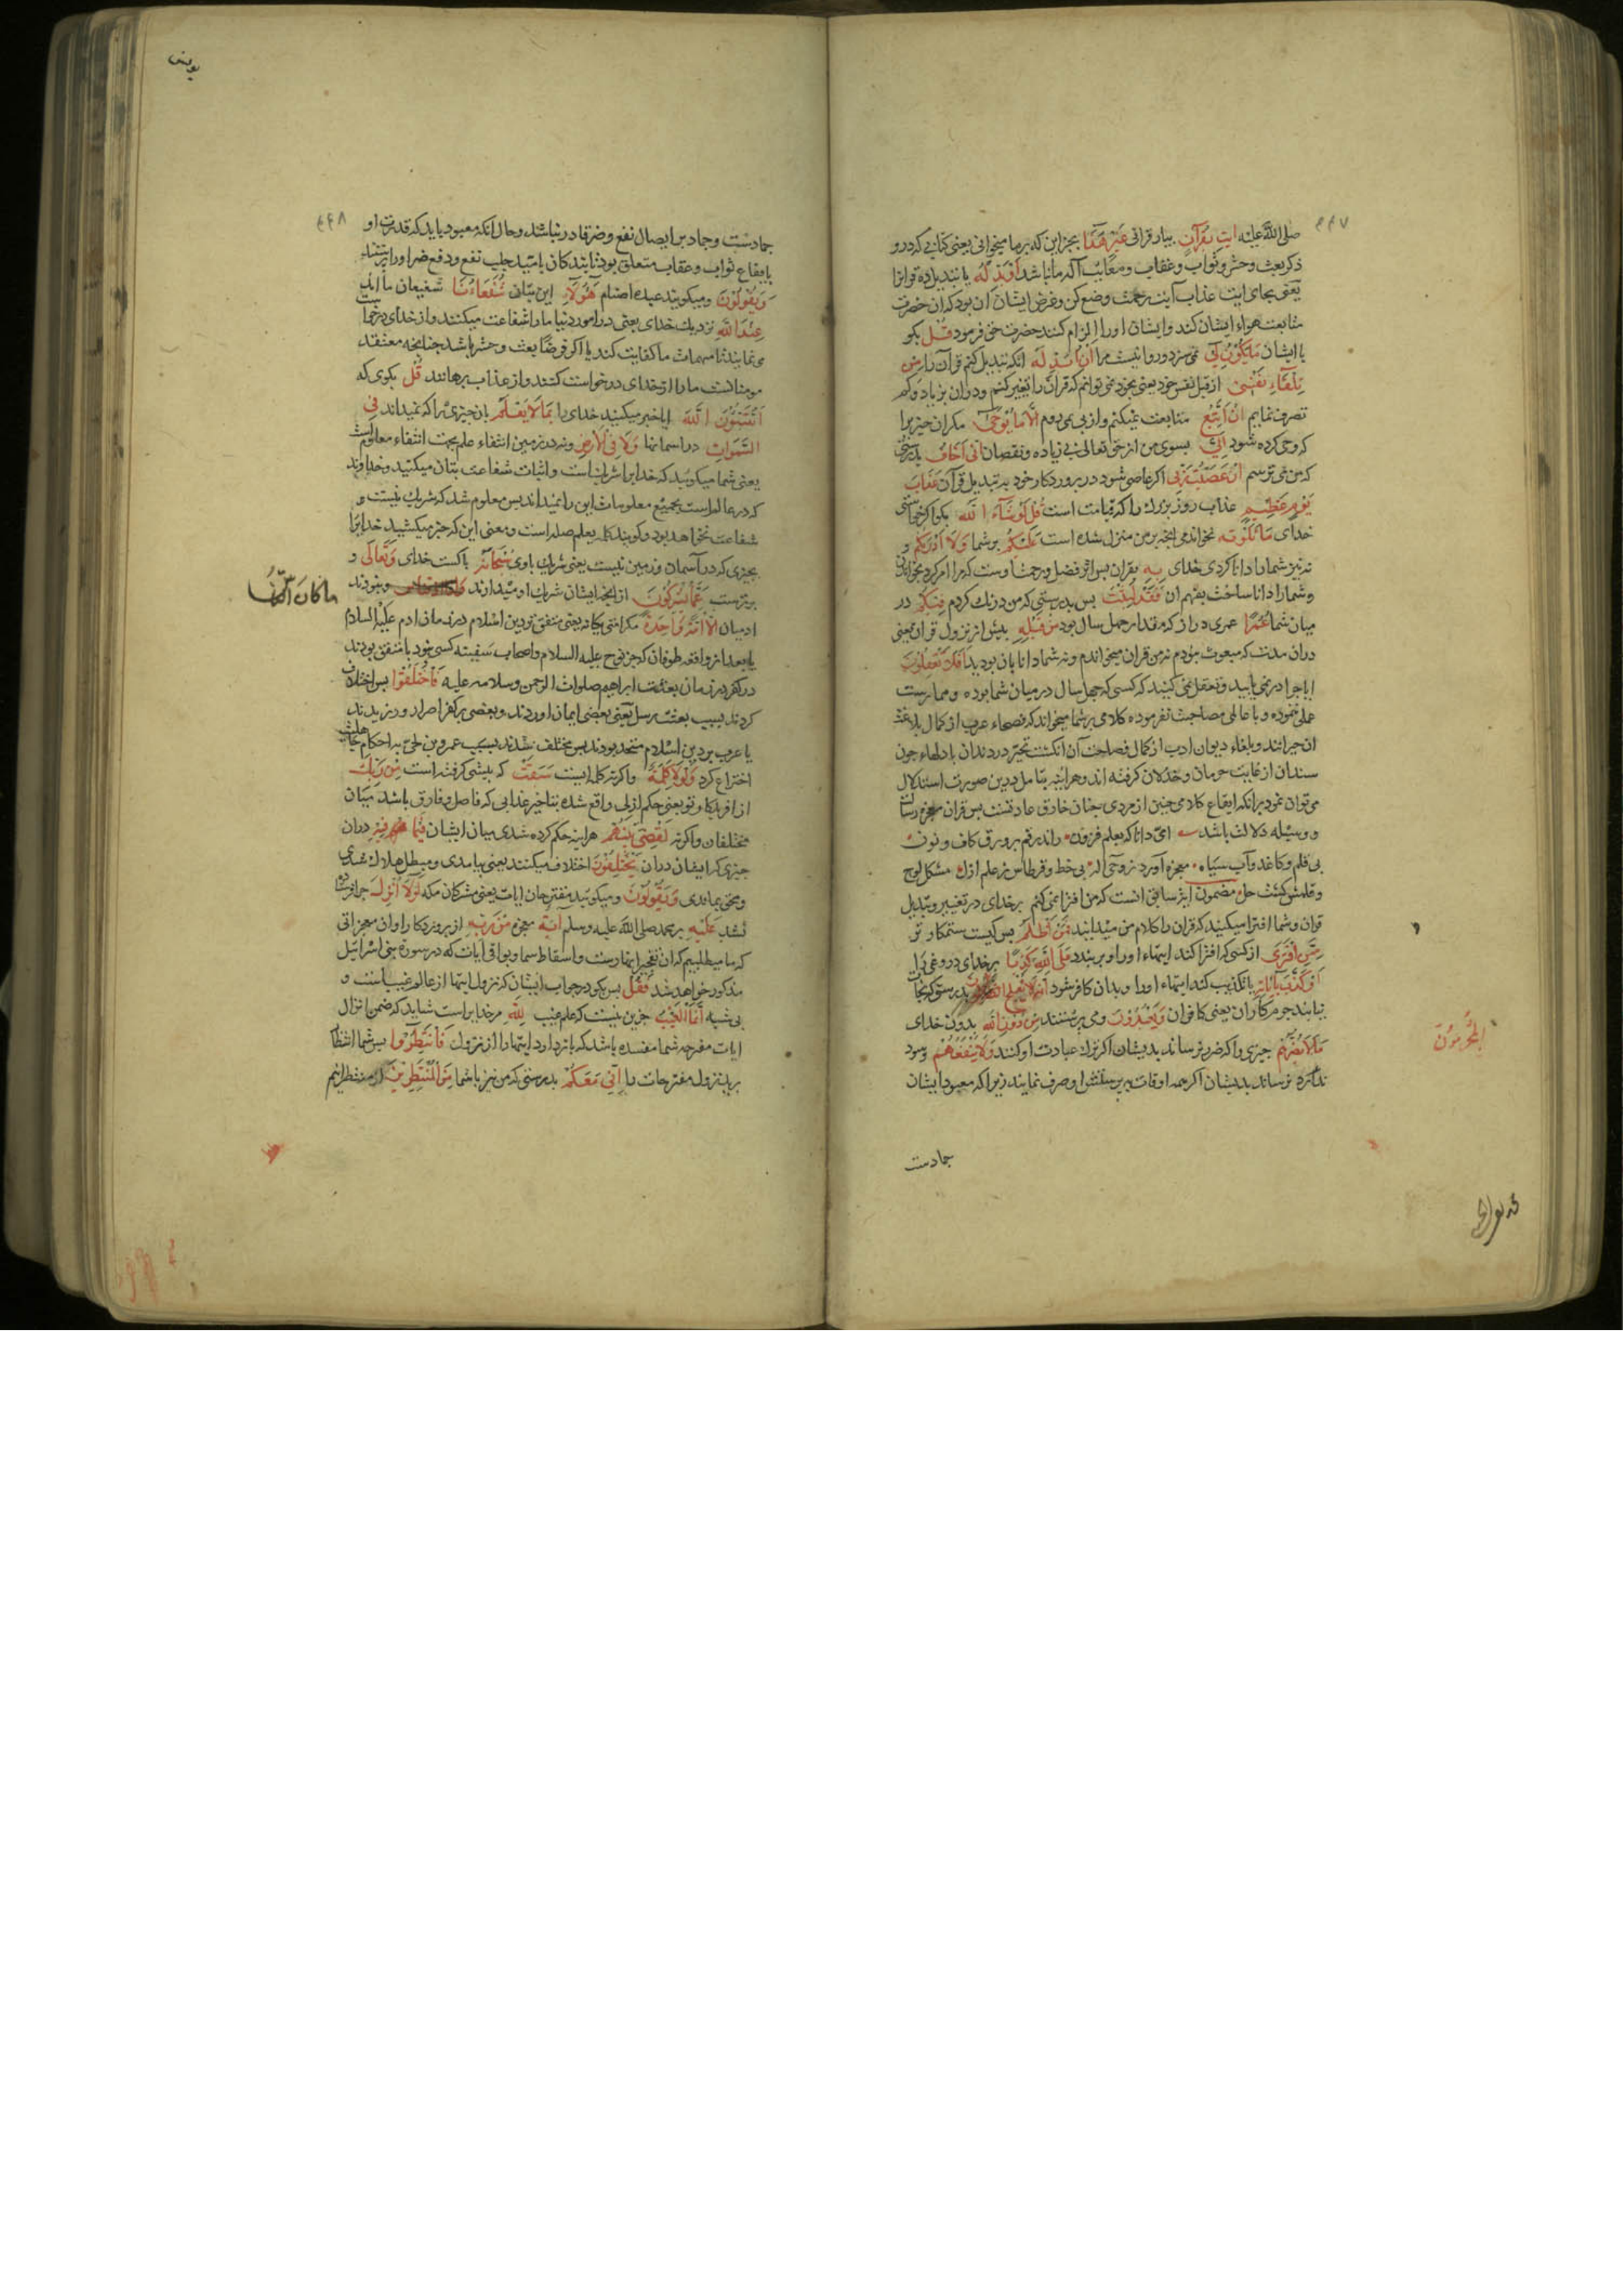 ۴۴۷
صلی الله علیه ائت بقرآن بیار قرانی غیر هذا بجز این که بر ما میخوانی یعنی کتابی که درو
ذکر بعث وحشر و ثواب و عقاب و معایب آلهه ما نباشد او بدله یا تبدیل ده قرانرا
یعنی بجای ایت عذاب آیت رحمت وضع کن و غرض ایشان ان بود که ان حضرت
متابعت هواء ایشان کند و ایشان اورا الزام کنند حضرت حق فرمود قل بکو
با ایشان ما یکون لی نمی سزد و روا نیست مرا ان ابدله انکه تبدیل کنم قرآن را من
تلقاء نفسی از قبل نفس خود یعنی بخود نمی توانم که قران را تغییر کنم و دران بزیاد و کم
تصرف نمایم ان اتبع متابعت نمیکنم و از پی نمی روم الا ما یوحی مکر ان چیز را
که وحی کرده شود الی بسوی من از حق تعالی بی زیاده و نقصان انی اخاف بدرستی
که من می ترسم ان عصیت ربی اکر عاصی شود در پروردکار خود به تبدیل قرآن عذاب
یوم عظیم عذاب روز بزرك را که قیامت است قل لو شاء الله بکو اکر خواستی
خدای ما تلوته نخواندمی انچه بر من منزل شده است علیکم بر شما ولا ادریکم و
نه نیز شما را دانا کردی خدای به بقران پس اثر فضل و رحمت اوست که مرا امر کرد بخواندن
و شما را دانا ساخت بفهم ان فقد لبثت پس بدرستی که من درنك کردم فیکم در
میان شما عمرا عمری دراز که مقدار چهل سال بود من قبله پیش از نزول قران یعنی
دران مدت که مبعوث نبودم نه من قران میخواندم و نه شما دانا بان بودید افلا تعقلون
ایا چرا در نمی یابید و تعقل نمی کنید که کسی که چهل سال در میان شما بوده و ممارست
علمی ننموده و با عالمی مصاحبت نفرموده کلامی بر شما میخواند که فصحاء عرب از کمال بلاغت
ان حیرانند و بلغاء دیوان ادب از کمال فصاحت آن انکشت تحیر در دندان با دلهاء چون
سندان از غایت حرمان و خذلان کرفته اند و هراینه بتامل درین صورت استدلال
می توان نمود برانکه ایقاع کلامی چنین از مردی چنان خارق عادتست پس قران معجزه رسالت
و وسیله دلالت باشد امی دانا که بعلم فزون راند رقم بر ورق کاف و نون
بی قلم و کاغذ و آب سیاه معجزه آورد ز وحی اله بی خط و قرطاس ز علم ازل مشکل لوح
و قلمش کشت حل مضمون ایة سابق انست که من افترا نمی کنم بر خدای در تغییر و تبدیل
قران و شما افترا میکنید که قران را کلام من میدانید فمن اظلم پس کیست ستمکار تر
ممن افتری از کسی که افترا کند ایتهاء او را و بر بندد علی الله کذبا بر خدای دروغی را
او کذب بآیاته یا تکذیب کند ایتهاء اورا و بدان کافر شود انه لا یفلح بدرستی که نجات
نیابند جرمکاران یعنی کافران ویعبدون و می پرستند من دون الله بدون خدای
ما لا یضرهم چیزی را که ضرر نرساند بدیشان اکر ترك عبادت او کنند ولا ینفعهم و سود
ندارد نرساند بدیشان اکر همه اوقات به پرستش او صرف نمایند زیرا که معبود ایشان
المجرمون
جمادست
یونس
۴۴۸
جمادست و جماد بر ایصال نفع و ضر قادر نباشد و حال انکه معبود باید که قدرت او
بایقاع ثواب و عقاب متعلق بود تا بندکان بامید جلب نفع و دفع ضر اورا پرستند
ویقولون و میکویند عبده اصنام هؤلاء این بتان شفعاءنا شفیعان ما اند
عند الله نزدیك خدای یعنی در امور دنیا ما را شفاعت میکنند و از خدای درخواست
می نمایند تا مهمات ما کفایت کند یا اکر فرضا بعث و حشر باشد چنانچه معتقد
مومنانست ما را از خدای درخواست کنند و از عذاب برهانند قل بکوی که
اتنبئون الله ایا خبر میکنید خدای را بما لا یعلم بان چیزی را که نمیداند فی
السموات در اسمانها ولا فی الارض و نه در زمین انتفاء علم بجهت انتفاء معلومست
یعنی شما میکوئید که خدایرا شریك است و اثبات شفاعت بتان میکنید و خداوند
که در عالم است بجمیع معلومات این را نمیداند پس معلوم شد که شریك نیست و
شفاعت نخواهد بود و کویند کلمه یعلم صله است و معنی این که خبر میکنید خدایرا
بچیزی که در آسمان و زمین نیست یعنی شریك باوی سبحانه پاکست خدای وتعالی و
برترست عما یشرکون از انچه ایشان شریك او میدارند و نبودند
ما کان الناس
ادمیان الا امة واحدة مکر امتی یکانه یعنی متفق بر دین اسلام در زمان ادم علیه السلام
یا بعد از واقعه طوفان که جز نوح علیه السلام و اصحاب سفینه کسی نبود یا متفق بودند
در کفر در زمان بعثت ابراهیم صلوات الرحمن وسلامه علیه فاختلفوا پس اختلاف
کردند بسبب بعثت رسل یعنی بعضی ایمان اوردند و بعضی بر کفر اصرار ورزیدند
یا عرب بر دین اسلام متحد بودند پس مختلف شدند بسبب عمرو بن لحی به احکام جاهلیت
اختراع کرد ولولا کلمة و اکر نه کلمه ایست سبقت که پیشی کرفته است من ربك
از افریدکار تو یعنی حکم ازلی واقع شده بتاخیر عذابی که فاصل و فارق باشد میان
مختلفان و اکر نه لقضی بینهم هراینه حکم کرده شدی میان ایشان فیما فیه دران
چیزی که ایشان دران یختلفون اختلاف میکنند یعنی بیامدی و مبطل هلاك شدی
و محق بماندی ویقولون و میکویند مقترحان ایات یعنی مشرکان مکه لولا انزل چرا فرستاده
نشد علیه بر محمد صلی الله علیه وسلم آیة معجزه من ربه از پروردکار او ان معجزاتی
که ما میطلبیم که ان تفجیر انهارست و اسقاط سما و بواقی ایات که در سورة بنی اسرائیل
مذکور خواهد شد فقل پس بکو در جواب ایشان که نزول ایتها از عالم غیب است و
بی شبه انما الغیب جزین نیست که علم غیب لله مر خدایراست شاید که ضمن انزال
ایات مقترحه شما مفسده باشد که بازدارد ایتها را از نزول فانتظروا پس شما انتظار
برید نزول مقترحات را انی معکم بدرستی که من نیز با شما من المنتظرین از منتظرانم